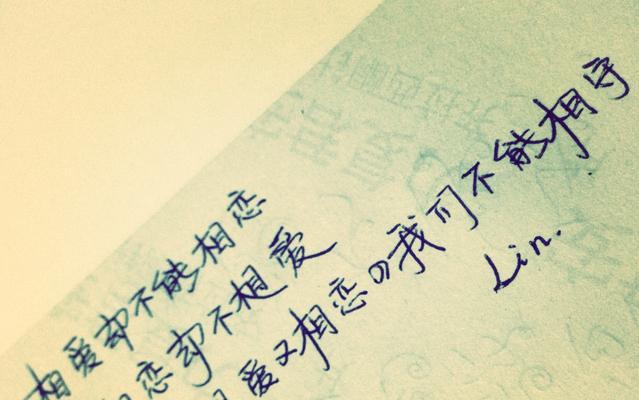 相爱却不能相恋
相恋却不相爱
相爱又相恋の我们不能相守
Lin.